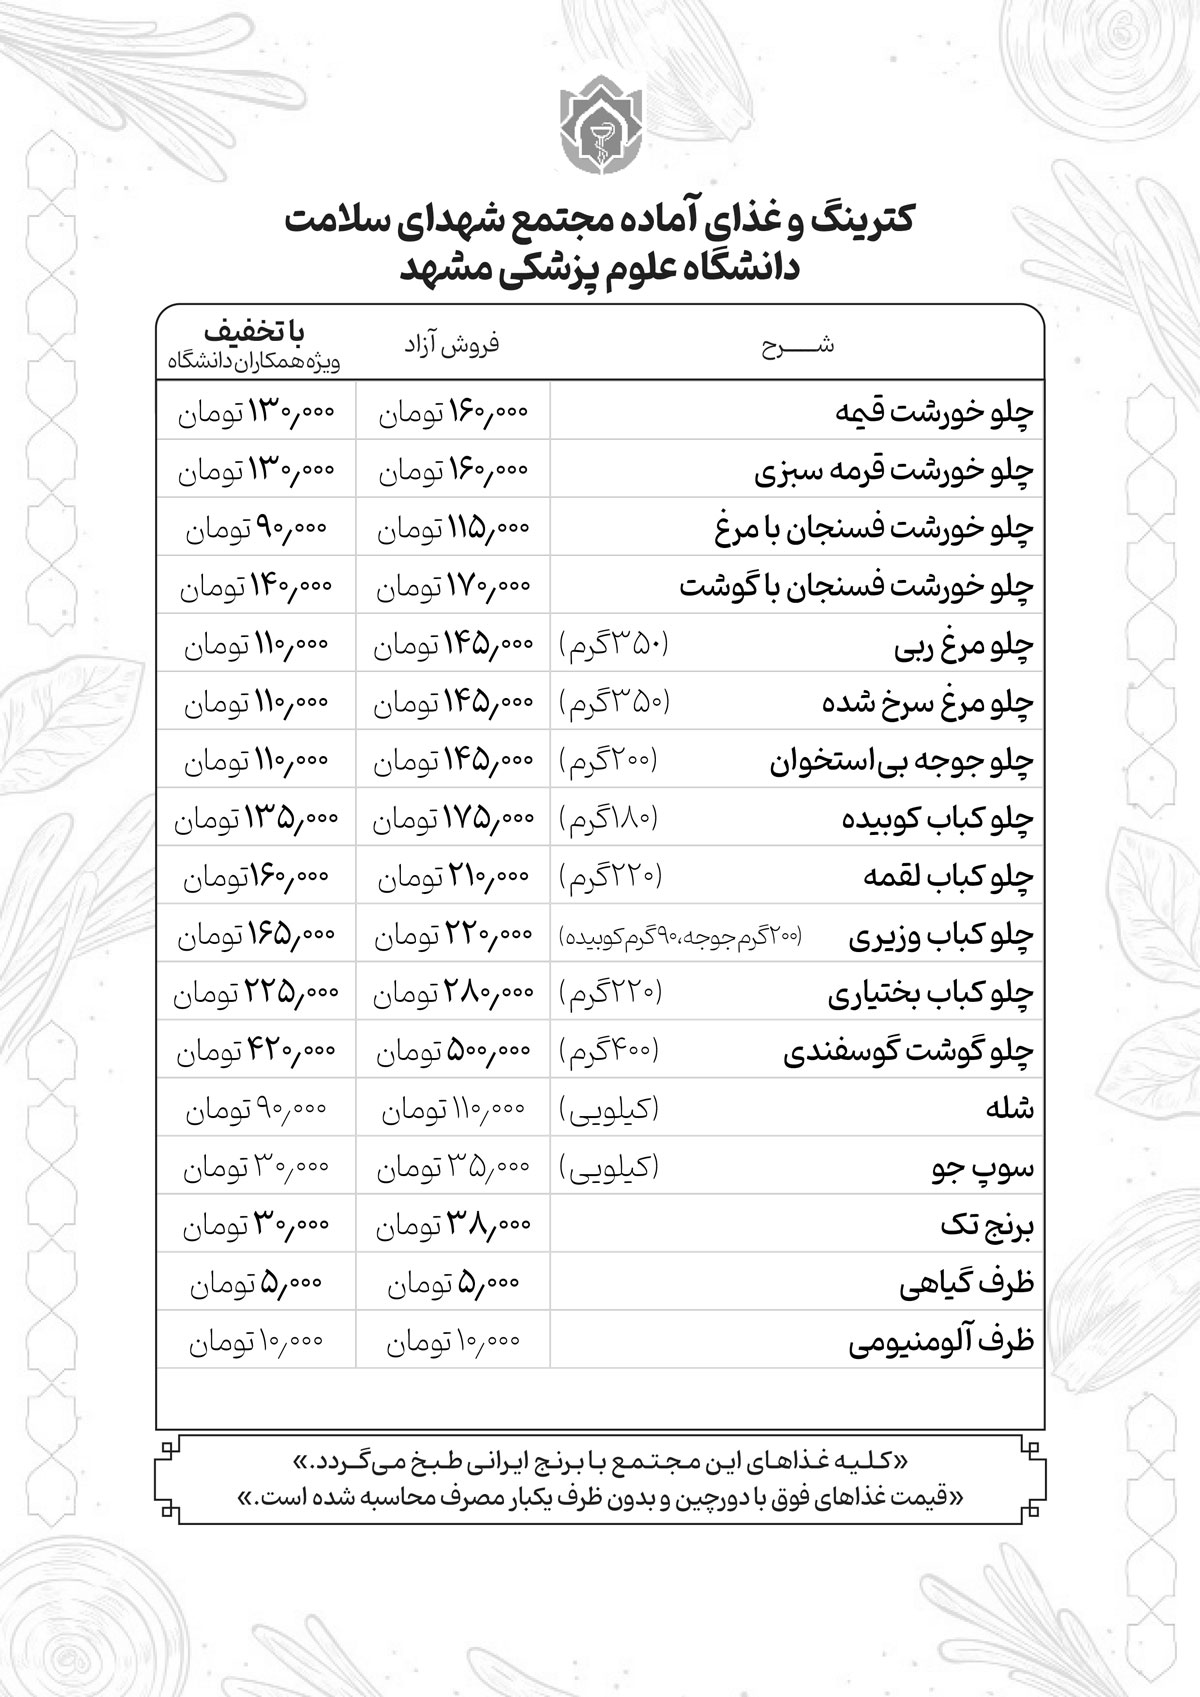 کترینگ و غذای آماده مجتمع شهدای سلامت
دانشگاه علوم پزشکی مشهد
شـــرح فروش آزاد با تخفیف
ویژه همکاران دانشگاه
چلو خورشت قیمه ۱۶۰٫۰۰۰ تومان ۱۳۰٫۰۰۰ تومان
چلو خورشت قرمه سبزی ۱۶۰٫۰۰۰ تومان ۱۳۰٫۰۰۰ تومان
چلو خورشت فسنجان با مرغ ۱۱۵٫۰۰۰ تومان ۹۰٫۰۰۰ تومان
چلو خورشت فسنجان با گوشت ۱۷۰٫۰۰۰ تومان ۱۴۰٫۰۰۰ تومان
چلو مرغ ربی (۳۵۰گرم) ۱۴۵٫۰۰۰ تومان ۱۱۰٫۰۰۰ تومان
چلو مرغ سرخ شده (۳۵۰گرم) ۱۴۵٫۰۰۰ تومان ۱۱۰٫۰۰۰ تومان
چلو جوجه بی‌استخوان (۲۰۰گرم) ۱۴۵٫۰۰۰ تومان ۱۱۰٫۰۰۰ تومان
چلو کباب کوبیده (۱۸۰گرم) ۱۷۵٫۰۰۰ تومان ۱۳۵٫۰۰۰ تومان
چلو کباب لقمه (۲۲۰گرم) ۲۱۰٫۰۰۰ تومان ۱۶۰٫۰۰۰ تومان
چلو کباب وزیری (۲۰۰گرم جوجه،۹۰گرم کوبیده) ۲۲۰٫۰۰۰ تومان ۱۶۵٫۰۰۰ تومان
چلو کباب بختیاری (۲۲۰گرم) ۲۸۰٫۰۰۰ تومان ۲۲۵٫۰۰۰ تومان
چلو گوشت گوسفندی (۴۰۰گرم) ۵۰۰٫۰۰۰ تومان ۴۲۰٫۰۰۰ تومان
شله (کیلویی) ۱۱۰٫۰۰۰ تومان ۹۰٫۰۰۰ تومان
سوپ جو (کیلویی) ۳۵٫۰۰۰ تومان ۳۰٫۰۰۰ تومان
برنج تک ۳۸٫۰۰۰ تومان ۳۰٫۰۰۰ تومان
ظرف گیاهی ۵٫۰۰۰ تومان ۵٫۰۰۰ تومان
ظرف آلومنیومی ۱۰٫۰۰۰ تومان ۱۰٫۰۰۰ تومان
«کلیه غذاهای این مجتمع با برنج ایرانی طبخ می‌گردد.»
«قیمت غذاهای فوق با دورچین و بدون ظرف یکبار مصرف محاسبه شده است.»